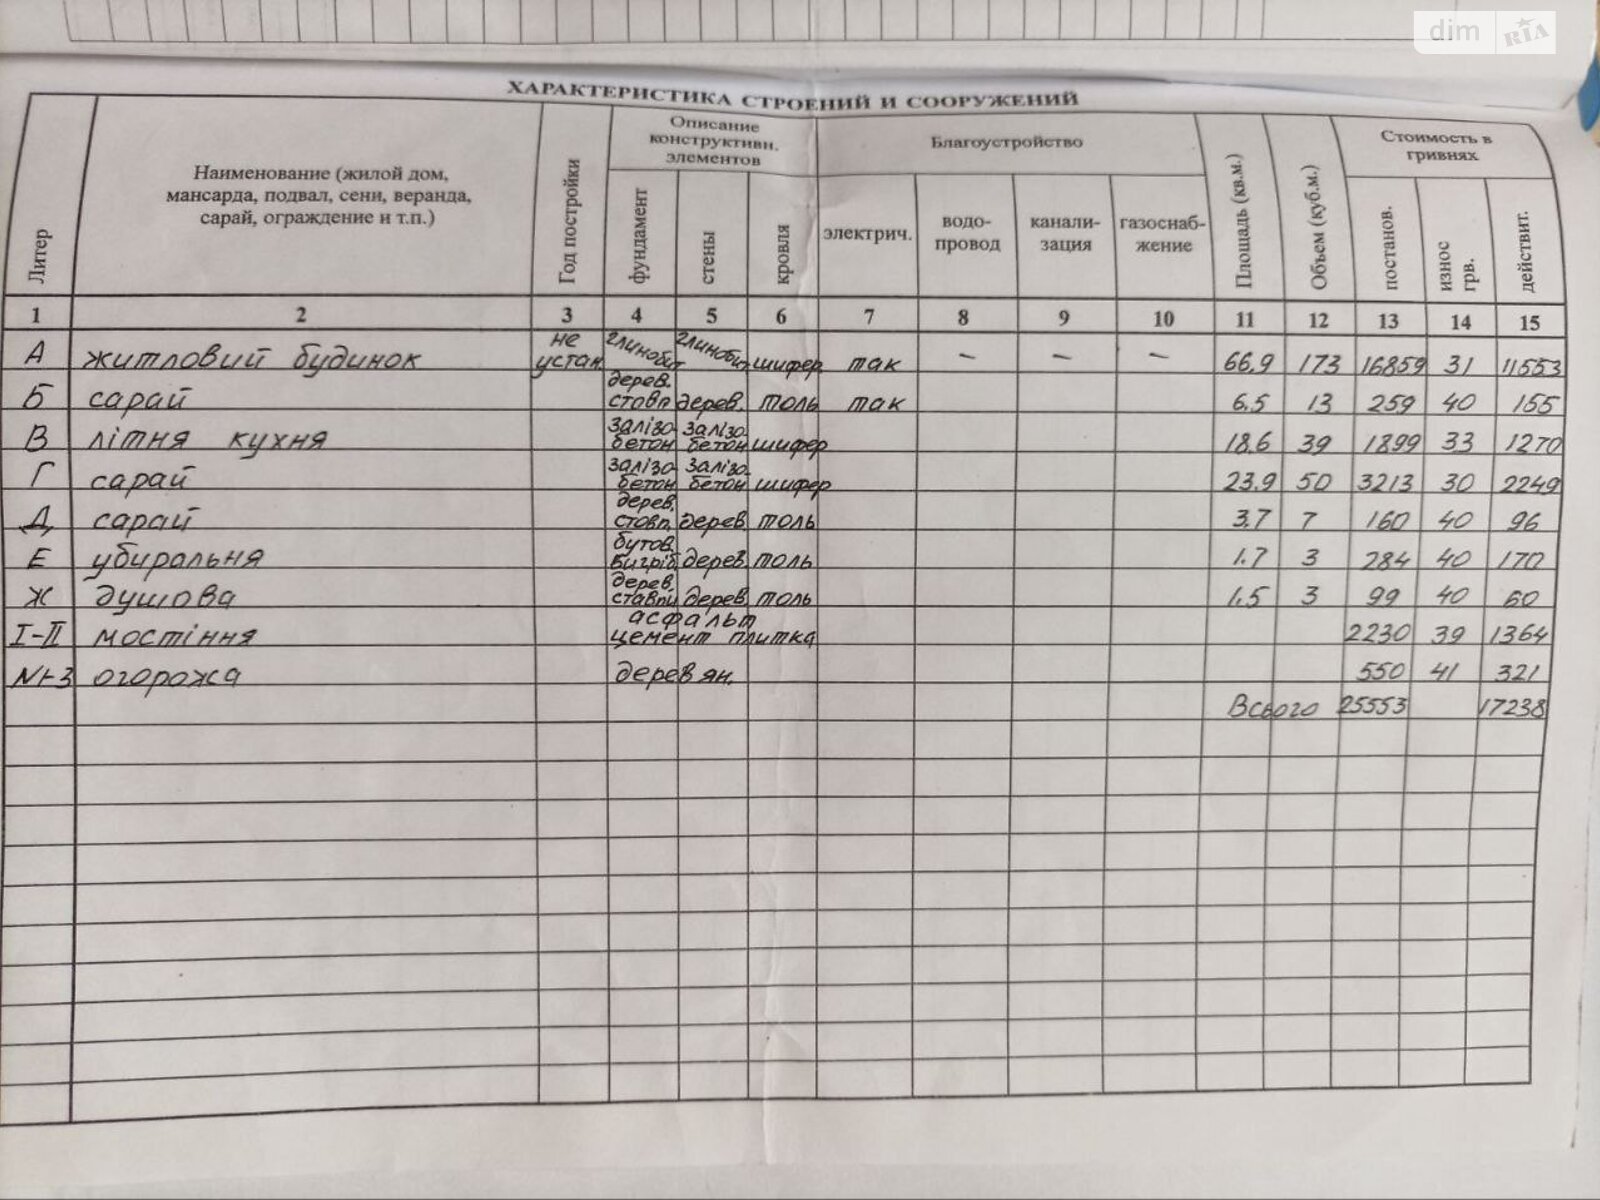 dim RIA
ХАРАКТЕРИСТИКА СТРОЕНИЙ И СООРУЖЕНИЙ
Литер
Наименование (жилой дом,
мансарда, подвал, сени, веранда,
сарай, ограждение и т.п.)
Год постройки
Описание
конструктивн.
элементов
фундамент
стены
кровля
Благоустройство
электрич.
водо-
провод
канали-
зация
газоснаб-
жение
Площадь (кв.м.)
Объем (куб.м.)
Стоимость в
гривнях
постанов.
износ
грв.
действит.
1 2 3 4 5 6 7 8 9 10 11 12 13 14 15
А житловий будинок не устан. глинобит глинобит. шифер так – – – 66.9 173 16859 31 11553
Б сарай дерев. стовп дерев. толь так 6.5 13 259 40 155
В літня кухня залізо бетон залізо бетон шифер 18.6 39 1899 33 1270
Г сарай залізо бетон залізо бетон шифер 23.9 50 3213 30 2249
Д сарай дерев. стовп. дерев. толь 3.7 7 160 40 96
Е убиральня бутов. вигріб дерев. толь 1.7 3 284 40 170
Ж душова дерев. ставпи дерев. толь 1.5 3 99 40 60
I-II мостіння асфальт цемент плитка 2230 39 1364
N1-3 огорожа дерев'ян. 550 41 321
Всього 25553 17238